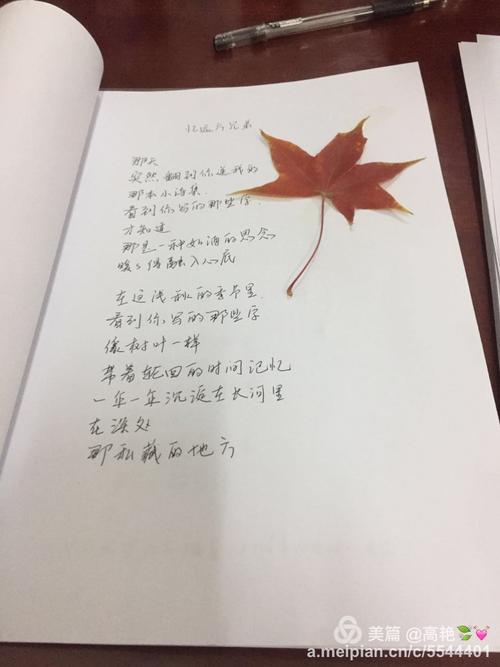 忆远方兄弟
那天
突然翻到你送我的
那本小诗集.
看到你写的那些字.
才知道
那是一种如酒的思念
暖s倍融入心底
在这浅秋的季节里.
看到你写的那些字
像树叶一样
带着轮回的时间记忆
一年一年沉淀在长河里
在深处
那私藏的地方
美篇 @高艳🍃💓
a.meipian.cn/c/5544401